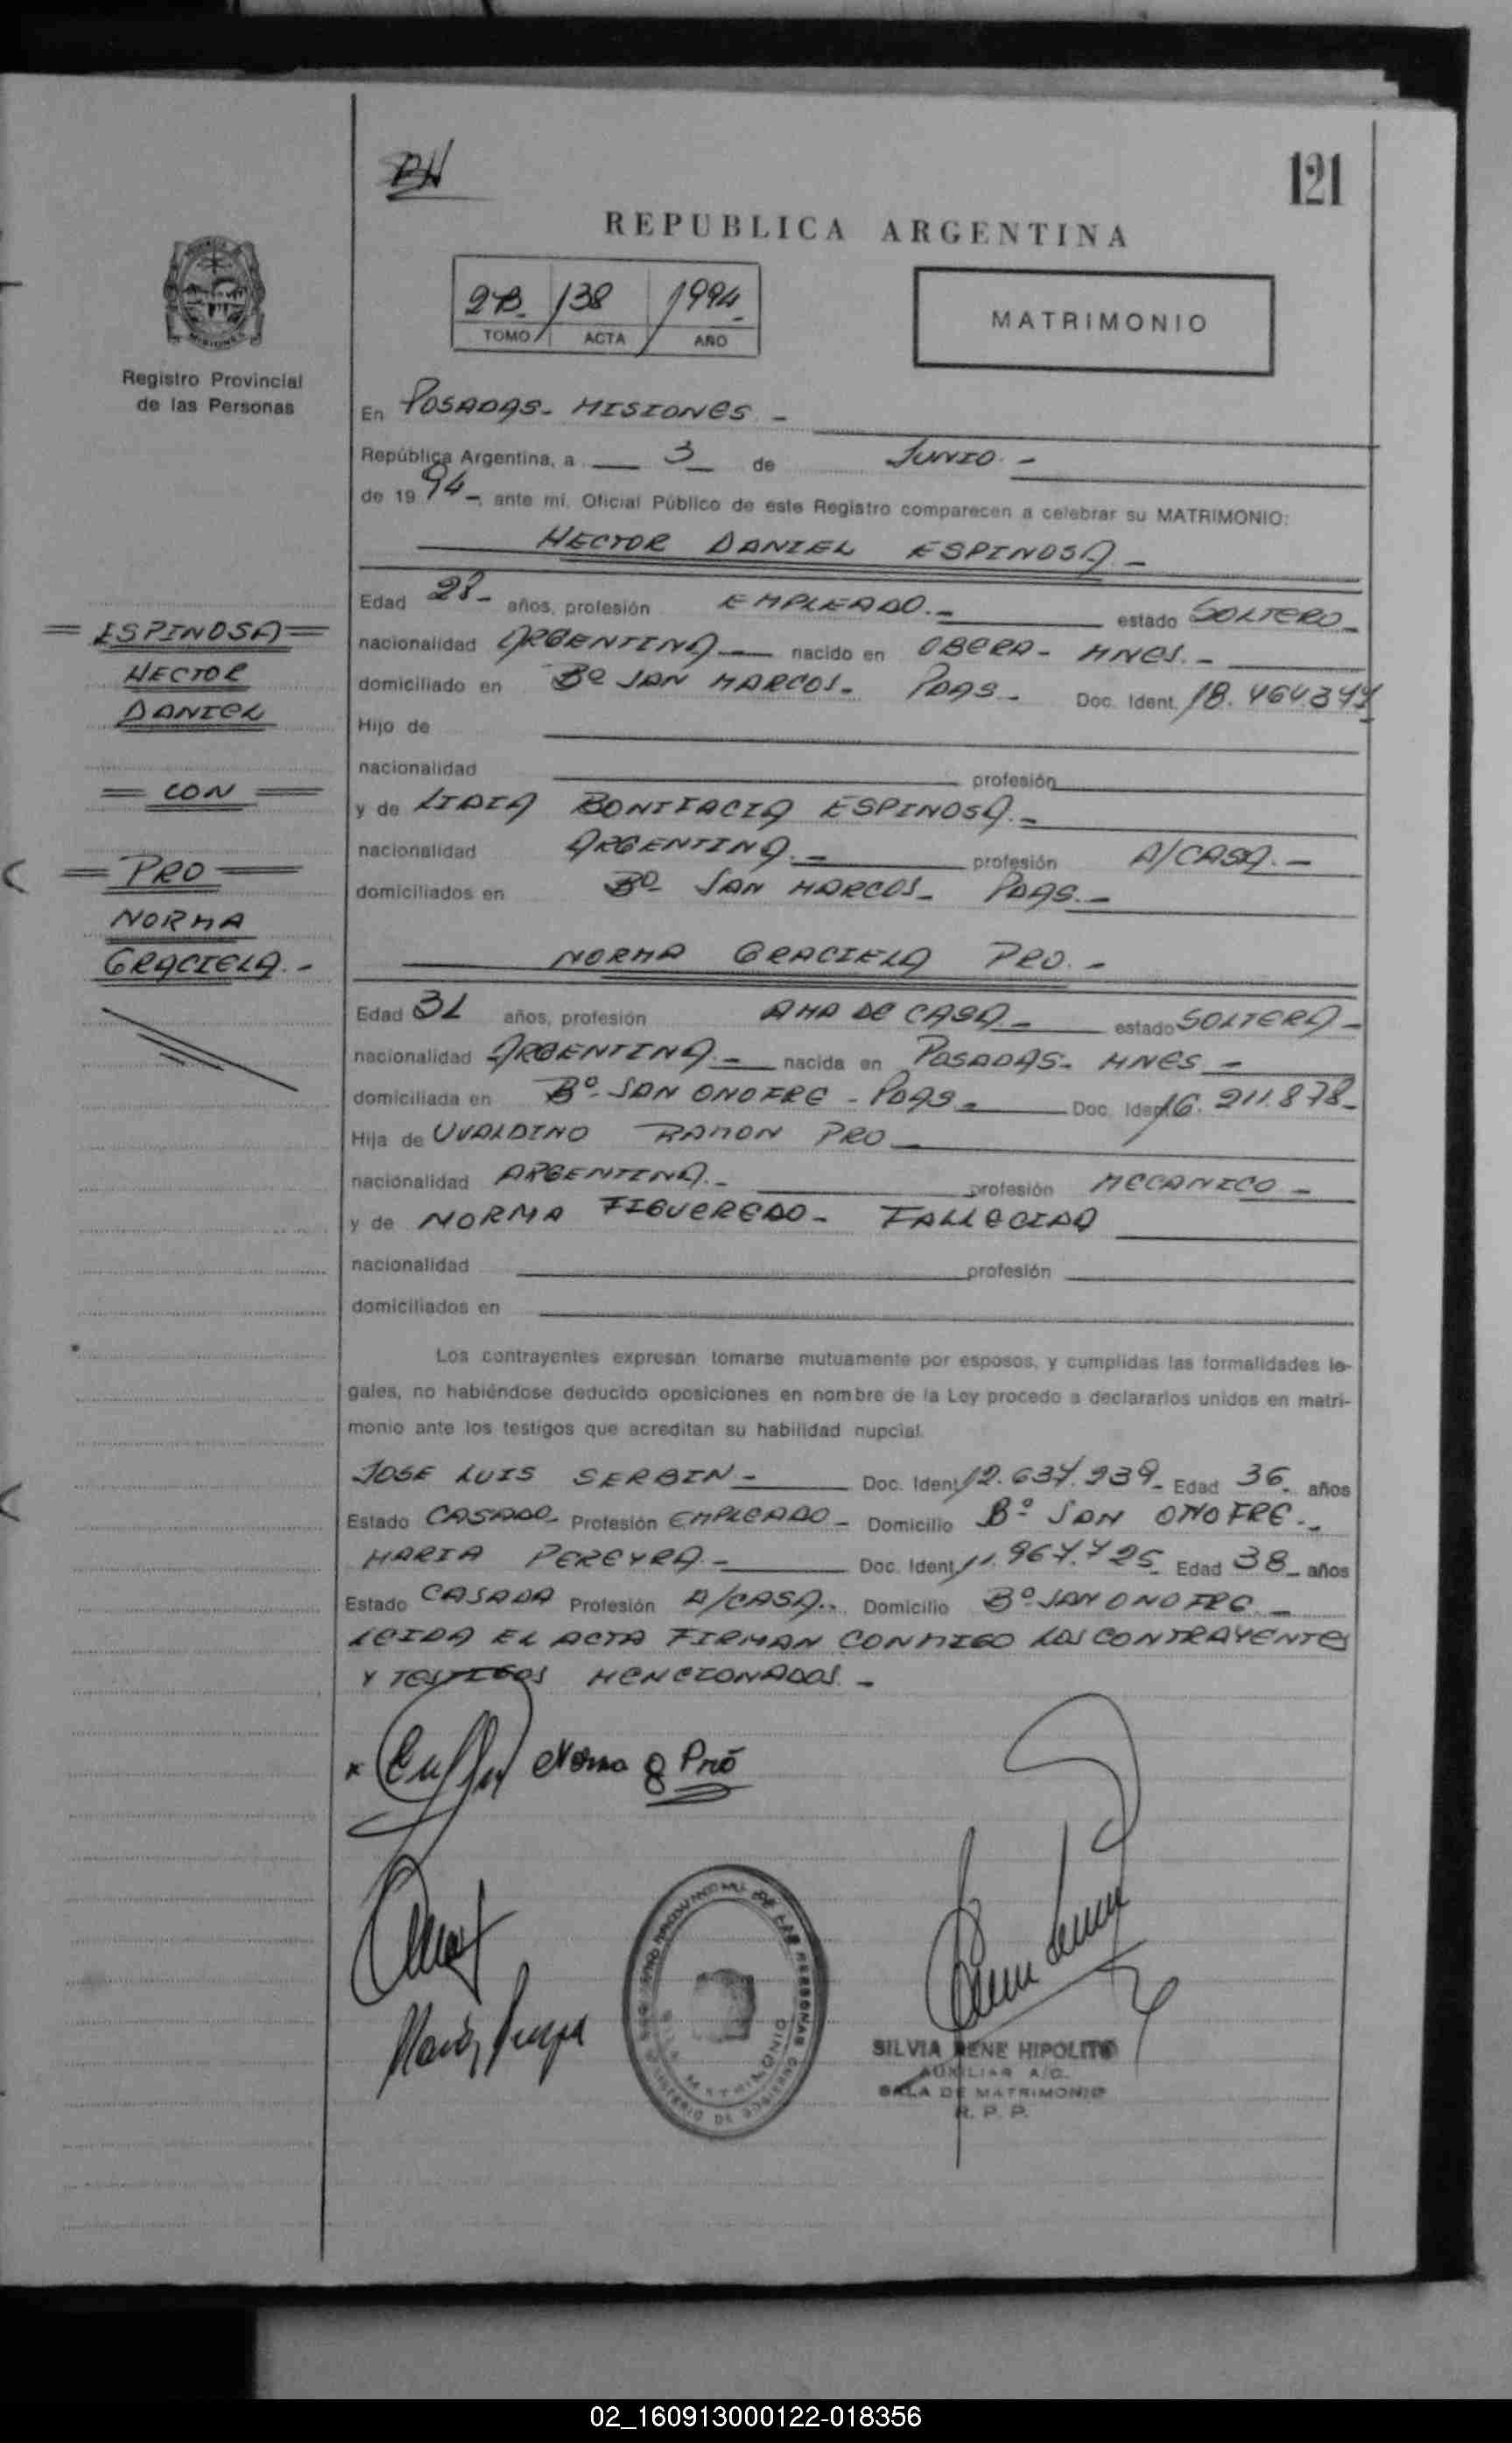 121
REPUBLICA ARGENTINA
2B- 138 1994-
TOMO ACTA AÑO
MATRIMONIO
Registro Provincial
de las Personas
En POSADAS- MISIONES.-
República Argentina, a 3 de JUNIO.-
de 1994-, ante mí, Oficial Público de este Registro comparecen a celebrar su MATRIMONIO:
HECTOR DANIEL ESPINOSA.-
Edad 28- años, profesión EMPLEADO.- estado SOLTERO-
nacionalidad ARGENTINA- nacido en OBERA- MNES.-
domiciliado en Bº SAN MARCOS- PDAS- Doc. Ident. 18.464.
Hijo de
nacionalidad profesión
y de LIDIA BONIFACIA ESPINOSA.-
nacionalidad ARGENTINA.- profesión A/CASA.-
domiciliados en Bº SAN MARCOS- PDAS.-
ESPINOSA
HECTOR
DANIEL
CON
PRO
NORMA
GRACIELA.-
NORMA GRACIELA PRO.-
Edad 31 años, profesión AMA DE CASA- estado SOLTERA-
nacionalidad ARGENTINA.- nacida en POSADAS- MNES-
domiciliada en Bº- SAN ONOFRE - PDAS- Doc. Ident. 16.211.878-
Hija de UVALDINO RAMON PRO
nacionalidad ARGENTINA.- profesión MECANICO-
y de NORMA FIGUEREDO- FALLECIDA
nacionalidad profesión
domiciliados en
Los contrayentes expresan tomarse mutuamente por esposos, y cumplidas las formalidades le-
gales, no habiéndose deducido oposiciones en nombre de la Ley procedo a declararlos unidos en matri-
monio ante los testigos que acreditan su habilidad nupcial.
JOSE LUIS SERBIN- Doc. Ident. 12.637.239- Edad 36- años
Estado CASADO- Profesión EMPLEADO- Domicilio Bº SAN ONOFRE.-
MARIA PEREYRA.- Doc. Ident. 11.967.725 Edad 38- años
Estado CASADA Profesión A/CASA.- Domicilio Bº SAN ONOFRE.-
LEIDA EL ACTA FIRMAN CONMIGO LOS CONTRAYENTES
Y TESTIGOS MENCIONADOS.-
Norma G Pró
SILVIA RENE HIPOLITO
AUXILIAR A/C.
SALA DE MATRIMONIO
R. P. P.
02_160913000122-018356